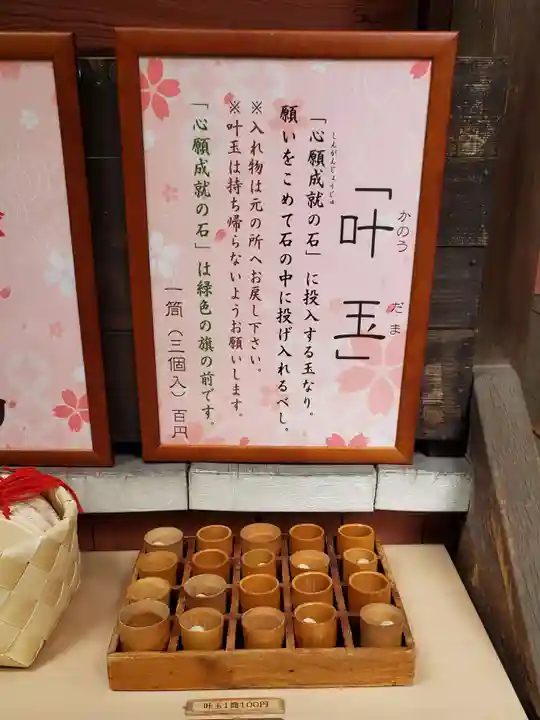 かのう だま
「叶 玉」
しんがんじょうじゅ
「心願成就の石」に投入する玉なり。
願いをこめて石の中に投げ入れるべし。
※入れ物は元の所へお戻し下さい。
※叶玉は持ち帰らないようお願いします。
「心願成就の石」は緑色の旗の前です。
一筒(三個入)百円
叶玉1筒100円